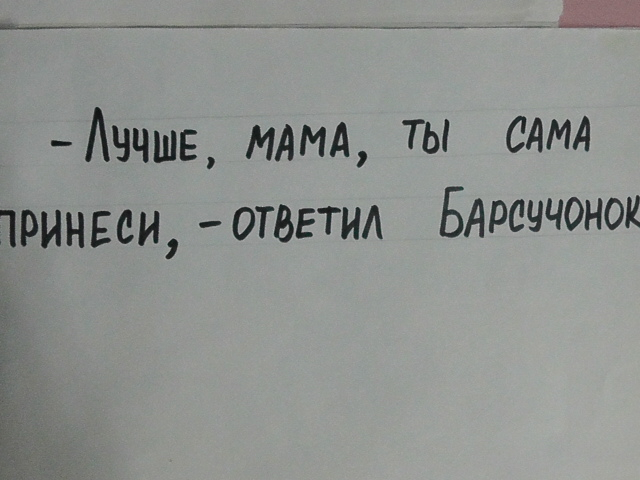 - Лучше, мама, ты сама
принеси, - ответил Барсучонок